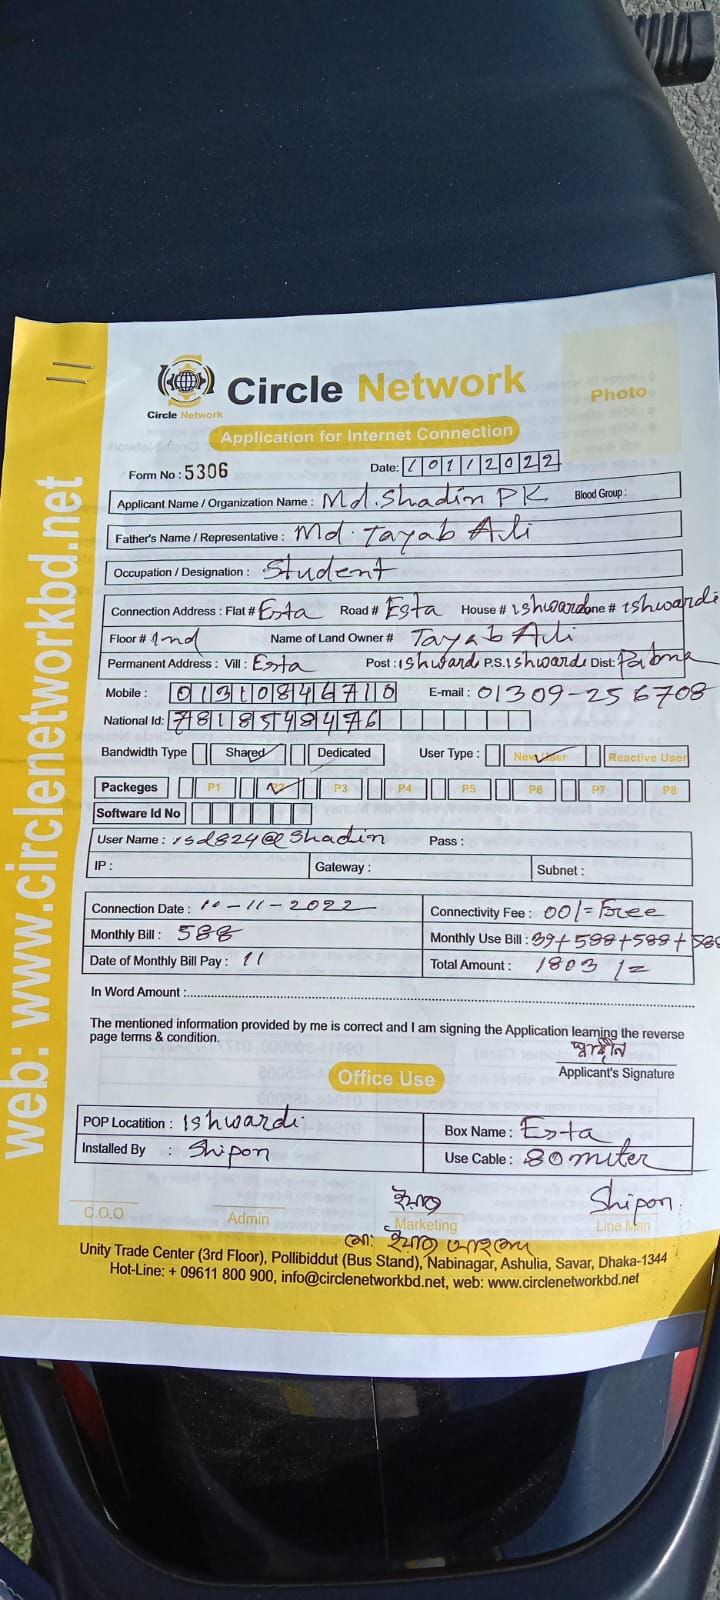 Circle Network
Circle Network
Photo
Application for Internet Connection
Form No : 5306
Date: 10112022
Applicant Name / Organization Name : Md. Shadin PK Blood Group :
Father's Name / Representative : Md. Tayab Ali
Occupation / Designation : Student
Connection Address : Flat # Esta Road # Esta House # ishwardi one # ishwardi
Floor # 1nd Name of Land Owner # Tayab Ali
Permanent Address : Vill : Esta Post : ishwardi P.S. ishwardi Dist: Pabna
Mobile : 01310846710 E-mail : 01309-256708
National Id: 7818548476
Bandwidth Type Shared Dedicated User Type : New User Reactive User
Packeges P1 P2 P3 P4 P5 P6 P7 P8
Software Id No
User Name : isd824@Shadin Pass :
IP : Gateway : Subnet :
Connection Date : 10-11-2022 Connectivity Fee : 00/= Free
Monthly Bill : 588 Monthly Use Bill : 39+588+588+588
Date of Monthly Bill Pay : 11 Total Amount : 1803 /=
In Word Amount :
The mentioned information provided by me is correct and I am signing the Application learning the reverse
page terms & condition.
স্বাধীন
Applicant's Signature
Office Use
POP Locatition : Ishwardi Box Name : Esta
Installed By : Shipon Use Cable : 80 miter
Shipon
C.O.O Admin Marketing Line Man
Unity Trade Center (3rd Floor), Pollibiddut (Bus Stand), Nabinagar, Ashulia, Savar, Dhaka-1344
Hot-Line: + 09611 800 900, info@circlenetworkbd.net, web: www.circlenetworkbd.net
web: www.circlenetworkbd.net